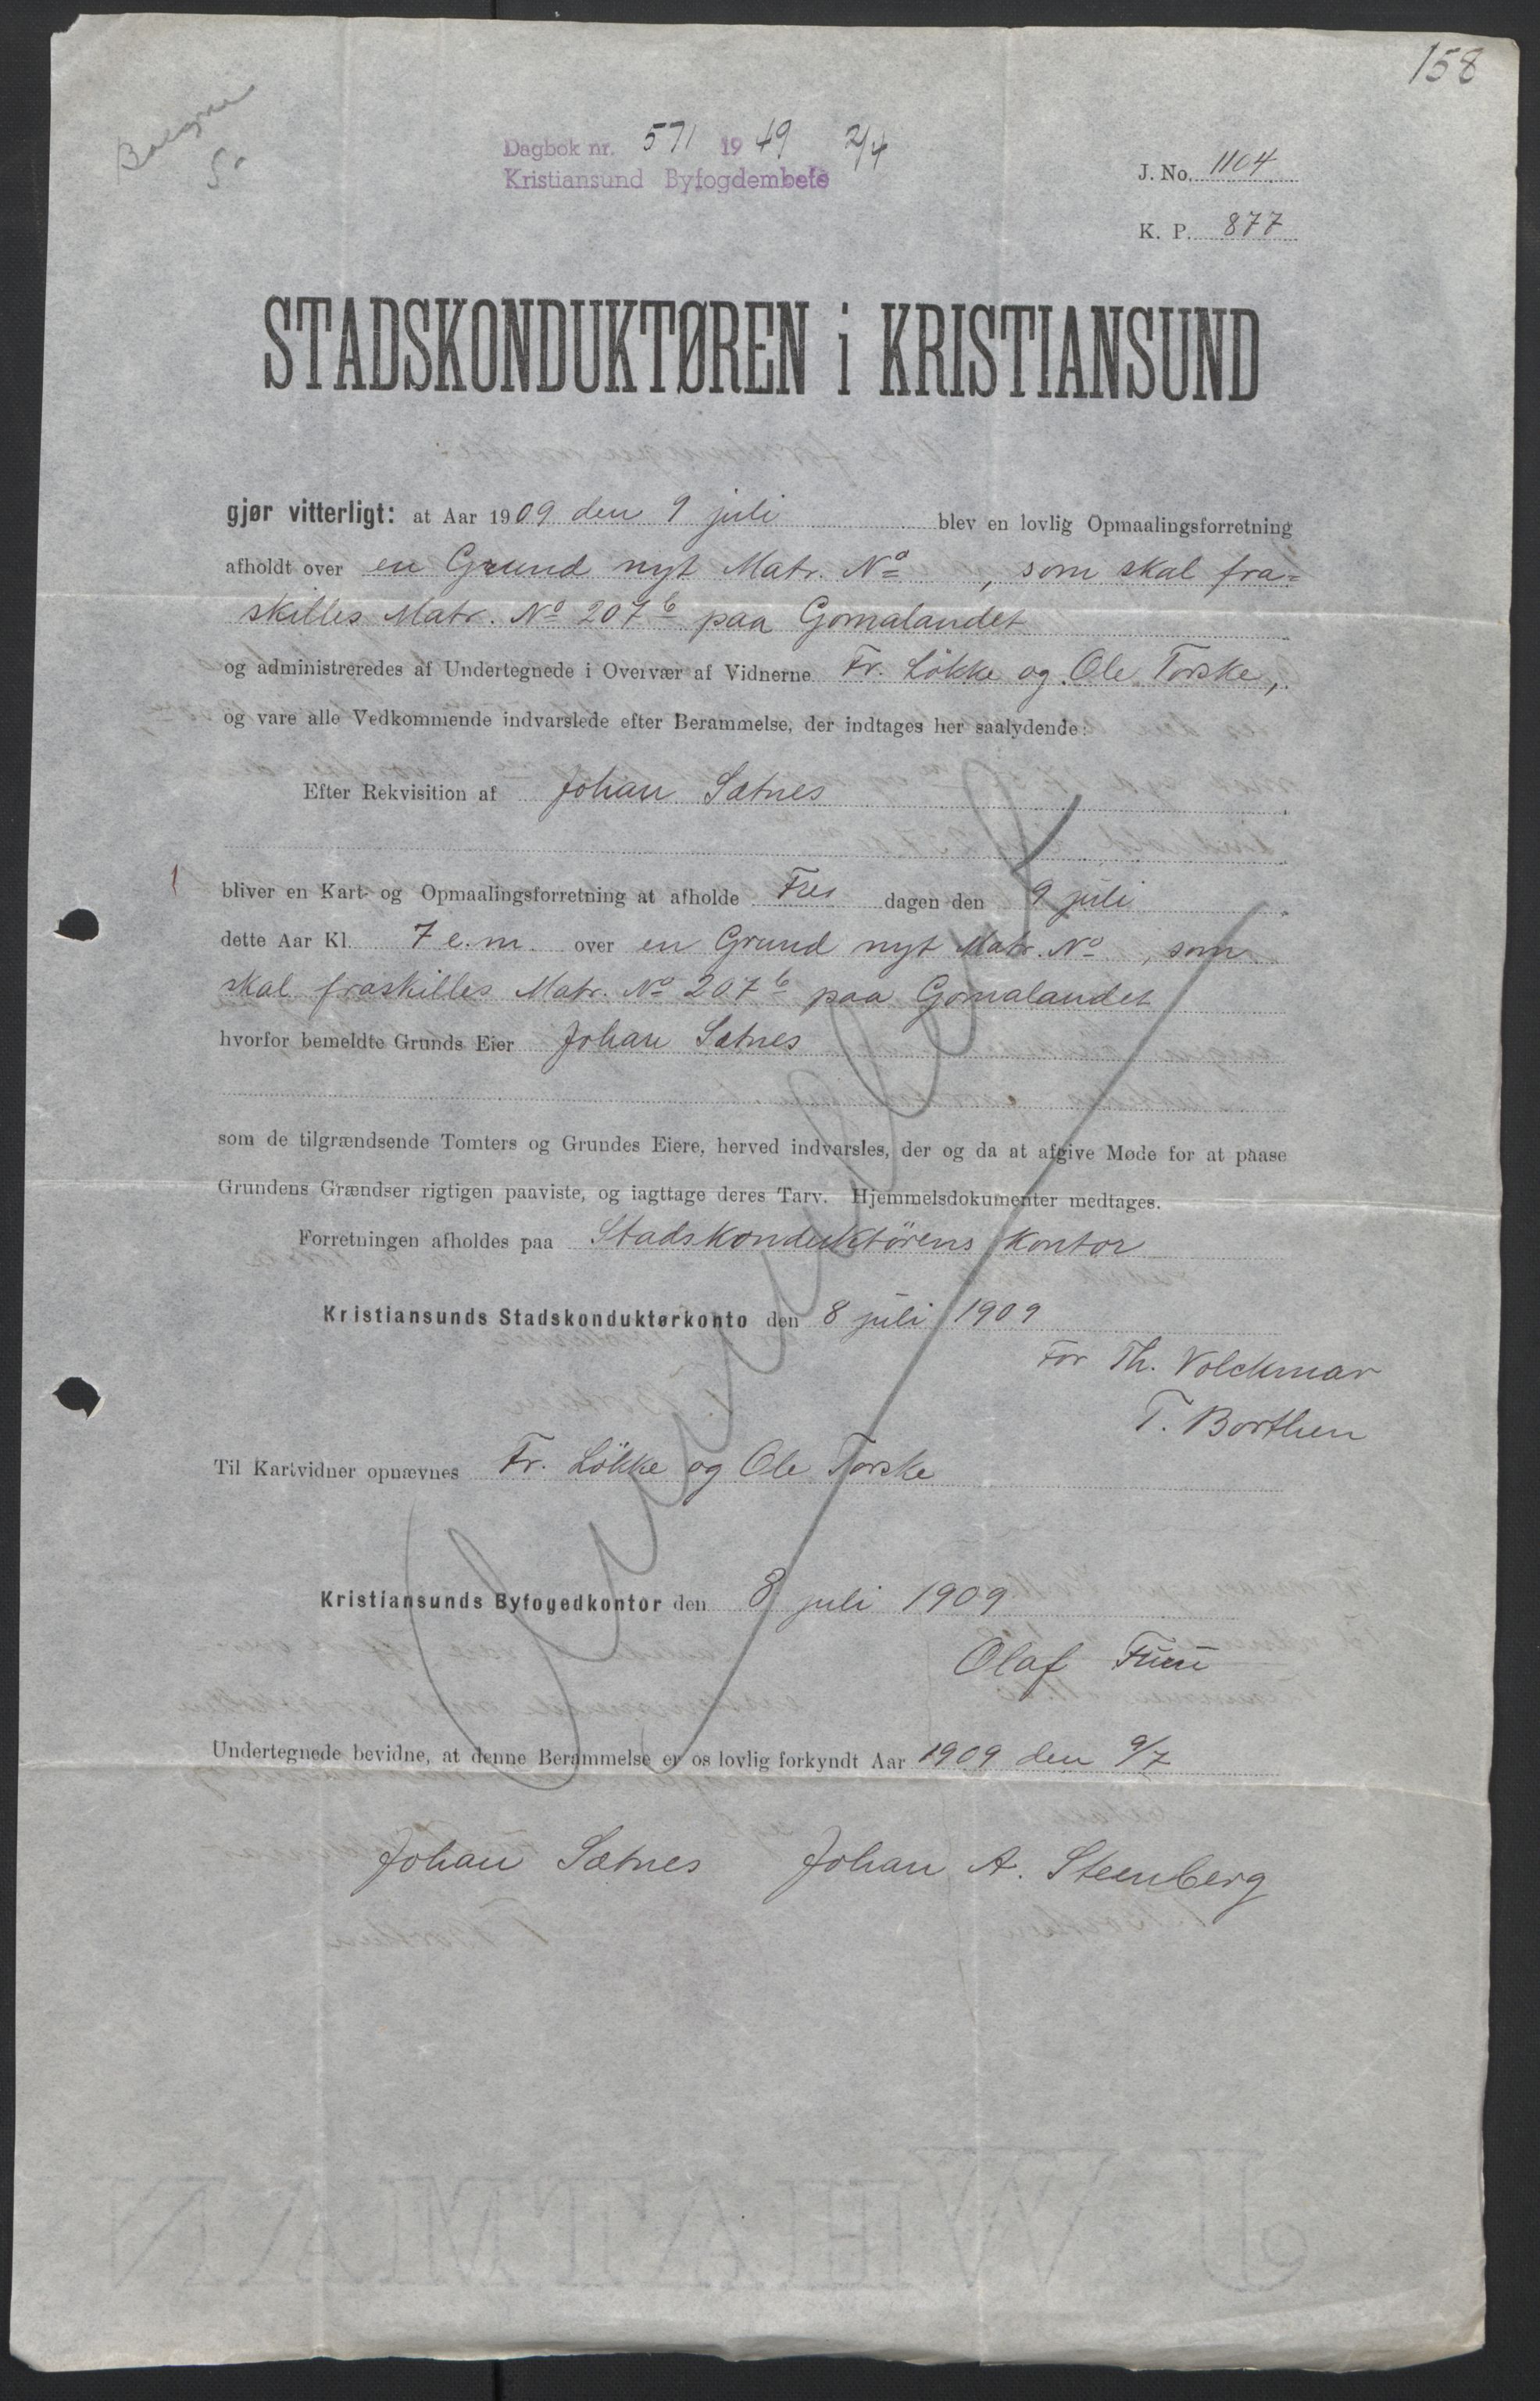 158
Dagbok nr. 571 1949 2/4
Kristiansund Byfogdembete
J. No. 1104
K. P. 877
STADSKONDUKTØREN i KRISTIANSUND
gjør vitterligt: at Aar 1909 den 9 juli blev en lovlig Opmaalingsforretning
afholdt over en Grund nyt Matr. No , som skal fra=
skilles Matr. No 207b paa Gomalandet
og administreredes af Undertegnede i Overvær af Vidnerne Fr. Lökke og Ole Torske,
og vare alle Vedkommende indvarslede efter Berammelse, der indtages her saalydende:
Efter Rekvisition af Johan Sætnes
bliver en Kart- og Opmaalingsforretning at afholde Fre dagen den 9 juli
dette Aar Kl. 7 e.m. over en Grund nyt Matr. No , som
skal fraskilles Matr. No 207b paa Gomalandet
hvorfor bemeldte Grunds Eier Johan Sætnes
som de tilgrændsende Tomters og Grundes Eiere, herved indvarsles, der og da at afgive Møde for at paase
Grundens Grændser rigtigen paaviste, og iagttage deres Tarv. Hjemmelsdokumenter medtages.
Forretningen afholdes paa Stadskonduktörens Kontor
Kristiansunds Stadskonduktørkonto den 8 juli 1909
For Th. Volckmar
T. Borthen
Til Kartvidner opnævnes Fr. Lökke og Ole Torske
Kristiansunds Byfogedkontor den 8 juli 1909
Olaf Furu
Undertegnede bevidne, at denne Berammelse er os lovlig forkyndt Aar 1909 den 9/7
Johan Sætnes Johan A. Steenberg
J WHATMAN